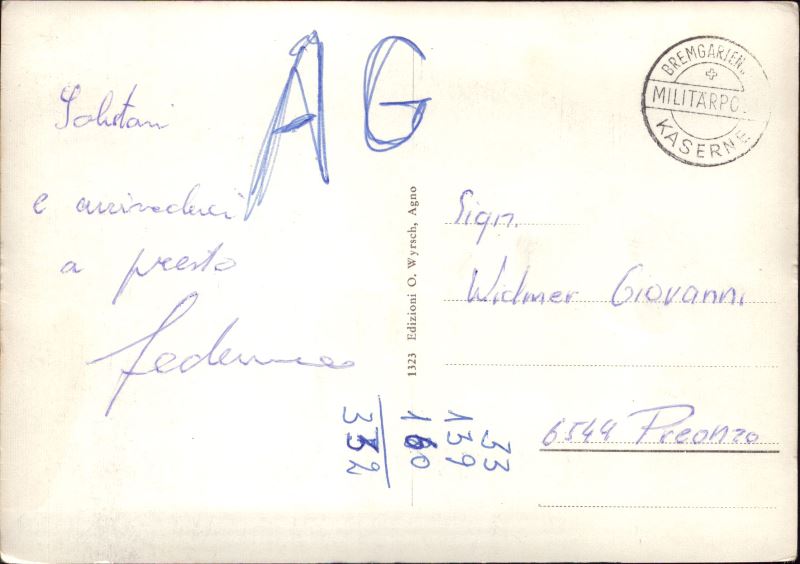 AG
Salutoni
e arrivederci
a presto
Federico
1323 Edizioni O. Wyrsch, Agno
BREMGARTEN
MILITÄRPO
KASERNE
Sign.
Widmer Giovanni
6544 Preonzo
33
139
160
332